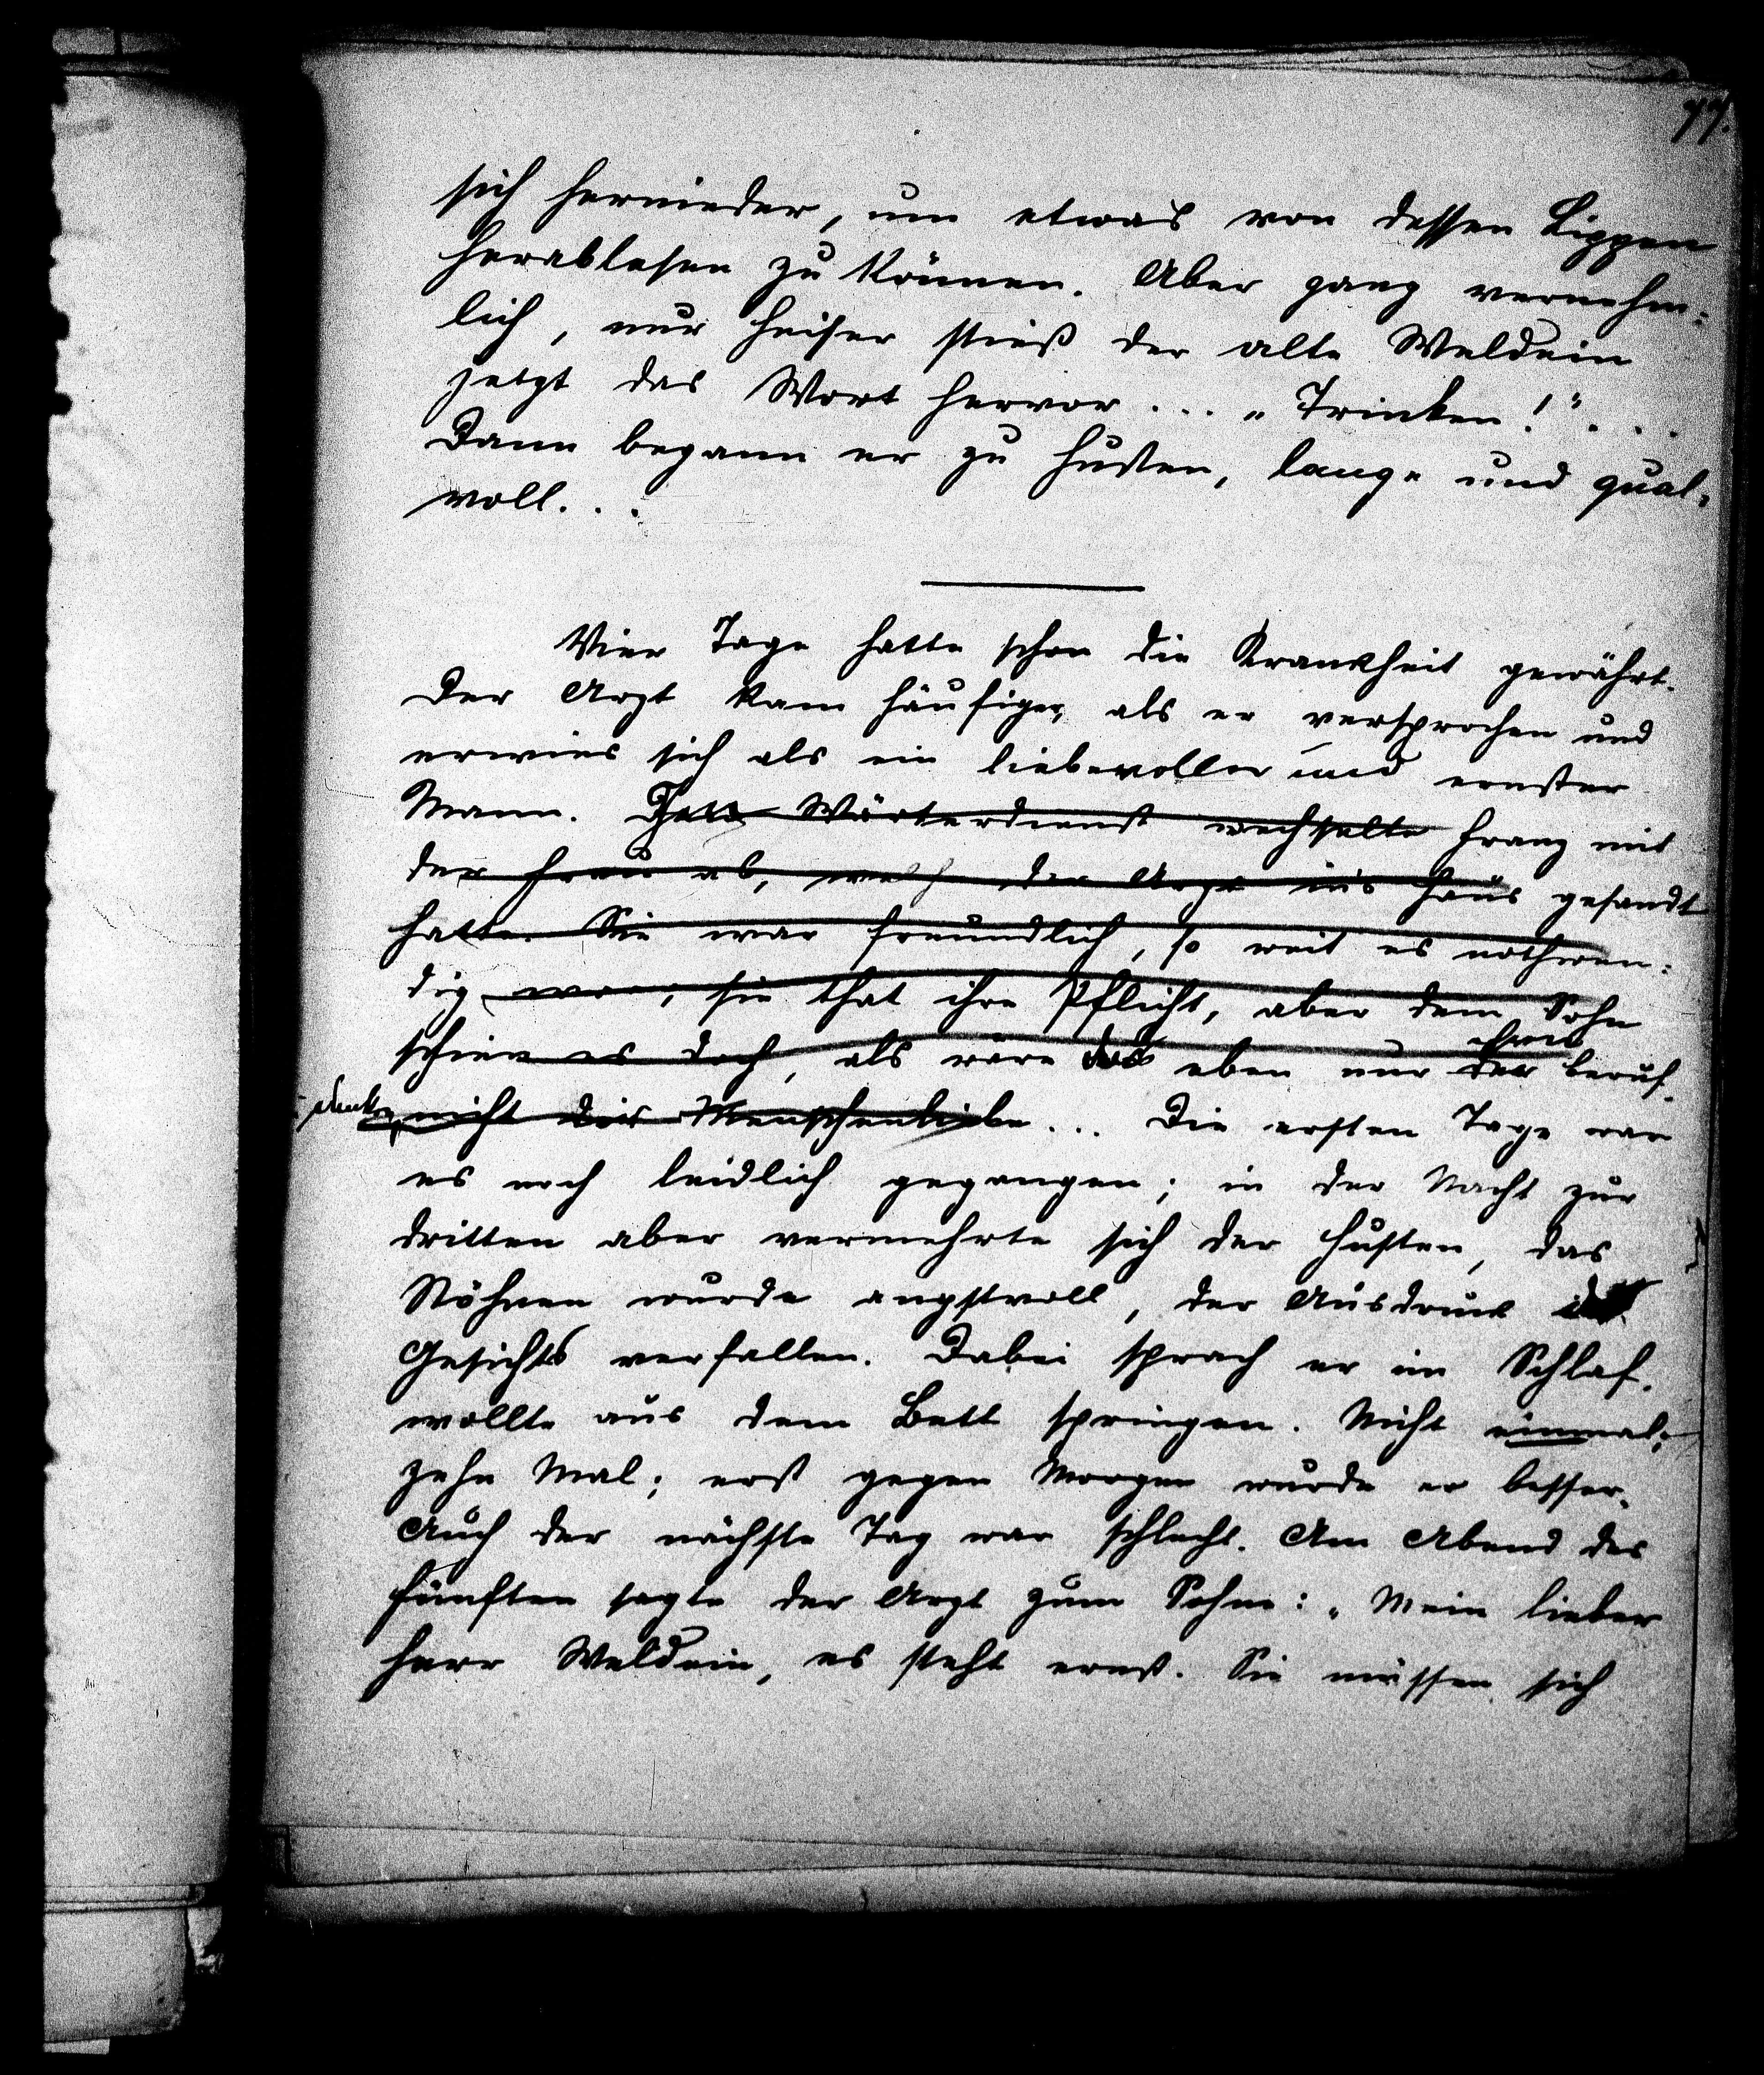 77.
sich hernieder, um etwas von dessen Lippen
herablesen zu können. Aber ganz vernehm-
lich, nur heiser stieß der alte Weldein
jetzt das Wort hervor... „Trinken!“...
Dann begann er zu husten, lange und qual-
voll...
Vier Tage hatte schon die Krankheit gewährt.
Der Arzt kam häufiger, als er versprochen und
erwies sich als ein liebevoller und ernster
Mann. Wärterdienst wechselte Franz mit
der Frau ab, welche der Arzt ins Haus gesandt
hatte. Sie war freundlich, so weit es nothwen-
dig war, sie that ihre Pflicht, aber dem Sohn
schien es doch, als wäre das eben nur der Beruf,
nicht die Menschenliebe... Die ersten Tage war
es noch leidlich gegangen; in der Nacht zur
dritten aber vermehrte sich der Husten, das
Stöhnen wurde angstvoll, der Ausdruck des
Gesichts verfallen. Dabei sprach er im Schlaf,
wollte aus dem Bett springen. Nicht einmal;
zehn Mal; erst gegen Morgen wurde er besser.
Auch der nächste Tag war schlecht. Am Abend des
fünften sagte der Arzt zum Sohne: „Mein lieber
Herr Weldein, es steht ernst. Sie müssen sich